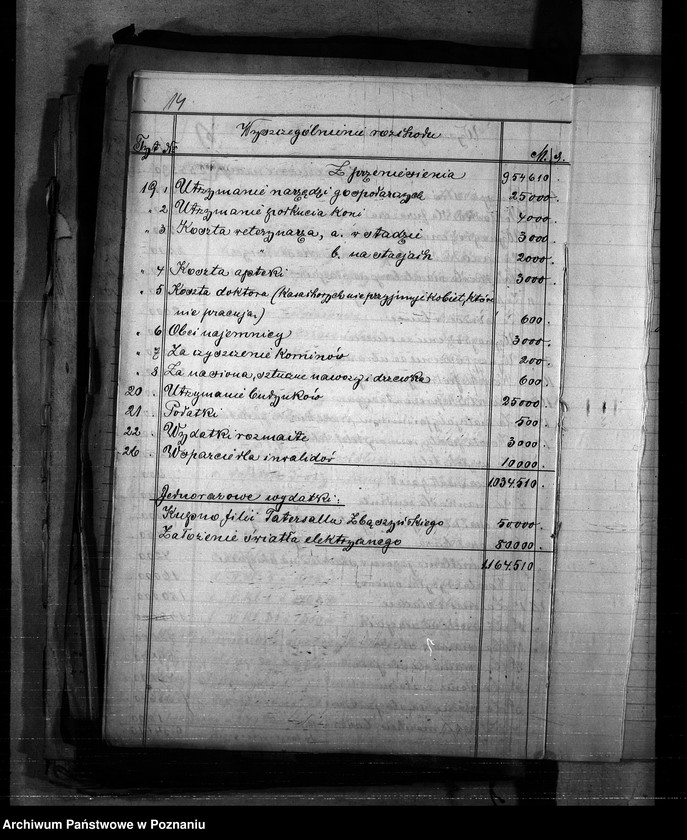 14
Wyszczególnienie rozchodu
Tyt. №
M. d.
Z przeniesienia 954610.
19. 1 Utrzymanie narzędzi gospodarczych 25000.
" 2 Utrzymanie i podkucia koni 4000.
" 3 Koszta weterynarza, a. w stadzie 3000.
" b. na stacjach 2000.
" 4 Koszta apteki 3000.
" 5 Koszta doktora (Kasa chorych nie przyjmuje kobiet, które
nie pracują.) 600.
" 6 Obci najemnicy 3000.
" 7 Za czyszczenie kominów 200.
" 8 Za nasiona, sztuczne nawozy i drzewka 600.
20. Utrzymanie budynków 25000.
21. Podatki 500.
22. Wydatki rozmaite 3000.
26. Wsparcie dla inwalidów 10000.
1034.510.
Jednorazowe wydatki:
Kupno filii Tatersalla Zbąszyńskiego 50.000.
Założenie światła elektrycznego 80.000.
1164.510
Archiwum Państwowe w Poznaniu